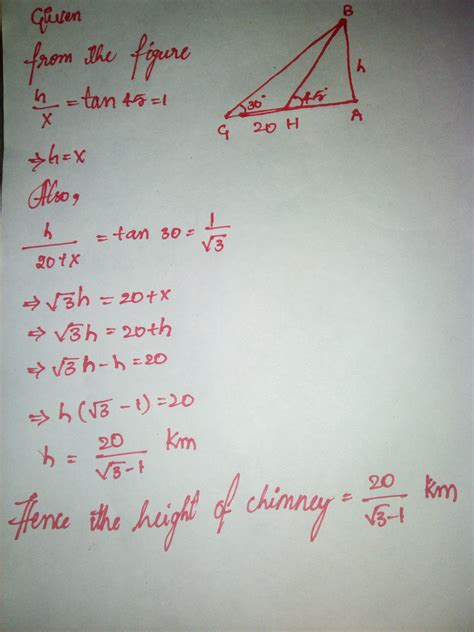 Given
from the figure
h/x = tan 45 = 1
⇒ h = x
Also,
h/20+x = tan 30 = 1/√3
⇒ √3h = 20+x
⇒ √3h = 20+h
⇒ √3h-h = 20
⇒ h(√3-1) = 20
h = 20/√3-1 Km
Hence the height of chimney = 20/√3-1 km
B
h
30°
45°
G 20 H A